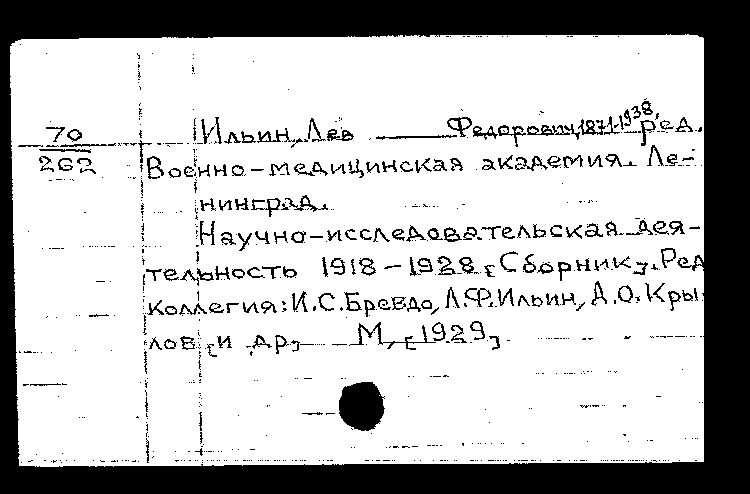 70
262
Ильин, Лев Федорович, 1871-1938, ред.
Военно-медицинская академия. Ле-
нинград.
Научно-исследовательская дея-
тельность 1918-1928 [Сборник]. Ред
коллегия: И.С. Бревдо, Л.Ф. Ильин, Д.О. Кры
лов [и др] М, [1929]